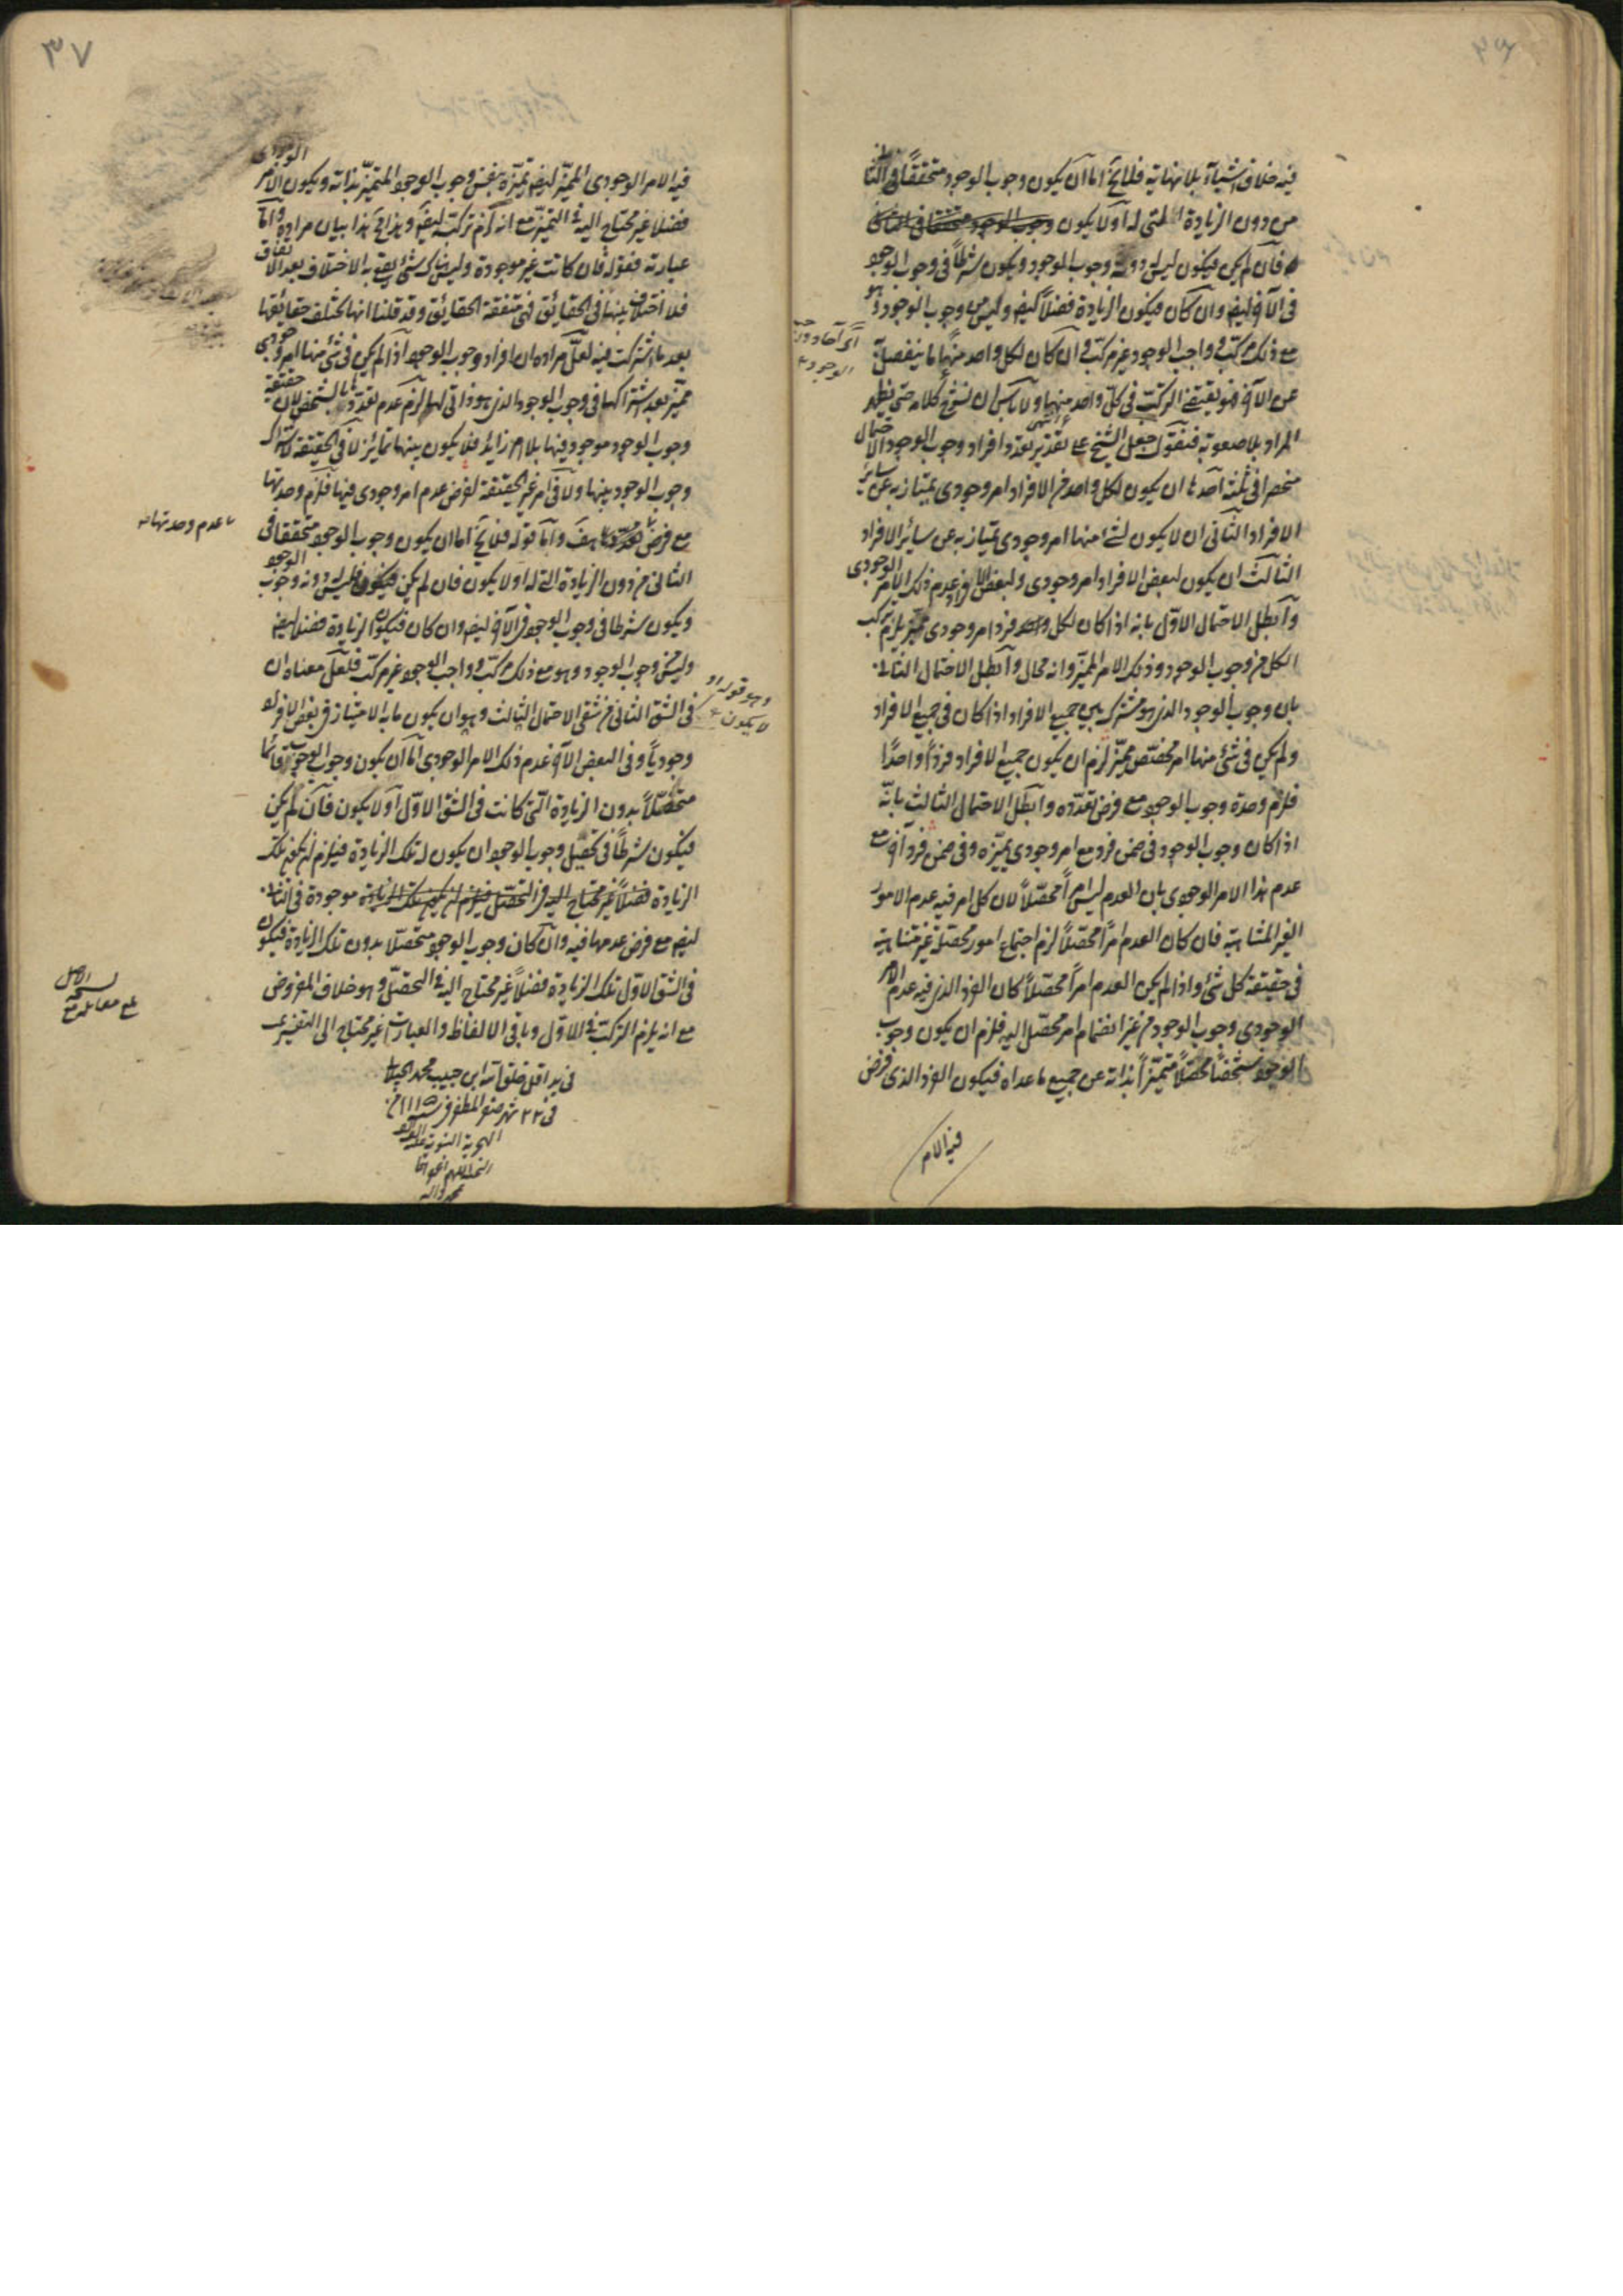 ٣٦
فيه خلاف اشياء بلا نهاية فلا يخ اما ان يكون وجوب الوجود متحققاً في الثاني
من دون الزيادة التي له او لا يكون وجوب الوجود متحققا في الثاني
فان لم يكن فيكون ليس دونه وجوب الوجود ويكون شرطاً في وجوب الوجود
في الآخر ايضا وان كان فيكون الزيادة فضلاً ليس من وجوب الوجود وهو
مع ذلك مركب و واجب الوجود غير مركب وان كان لكل واحد منهما ما ينفصل به
عن الآخر فهو يقتضي التركيب في كل واحد منهما انتهى ولا باس ان نشرح كلامه حتى يظهر
المراد بلا صعوبة فنقول جعل الشيخ على تقدير تعدد افراد وجوب الوجود الاحتمال
منحصرا في ثلثة احدها ان يكون لكل واحد من الافراد امر وجودي يمتاز به عن سائر
الافراد الثاني ان لا يكون لشئ منها امر وجودي يمتاز به عن سائر الافراد
الثالث ان يكون لبعض الافراد امر وجودي ولبعض الافراد عدم ذلك الامر الوجودي
وابطل الاحتمال الاول بانه اذا كان لكل واحد فرد امر وجودي مميز يلزم تركب
الكل من وجوب الوجود وذلك الامر المميز وانه محال وابطل الاحتمال الثاني
بان وجوب الوجود الذي هو مشترك بين جميع الافراد اذا كان في جميع الافراد
ولم يكن في شئ منها امر مختص مميز لزم ان يكون جميع الافراد فرداً واحداً
فلزم وحدة وجوب الوجود مع فرض تعدده وابطل الاحتمال الثالث بانه
اذا كان وجوب الوجود في ضمن فرد مع امر وجودي يميزه وفي ضمن فرد آخر مع
عدم هذا الامر الوجودي بان العدم ليس امراً محصلاً لان كل امر فيه عدم الامور
الغير المتناهية فان كان العدم امراً محصلاً لزم اجتماع امور محصلة غير متناهية
في حقيقة كل شئ واذا لم يكن العدم امراً محصلاً كان الفرد الذي فيه عدم الامر
الوجودي وجوب الوجود من غير انضمام امر محصل اليه فلزم ان يكون وجوب
الوجود متشخصاً محصلاً متميزاً بذاته عن جميع ما عداه فيكون الفرد الذي فرض
فيه الامر
٣٧
فيه الامر الوجودي المميز ايضا تميزه بنفس وجوب الوجود المتميز بذاته ويكون الامر الوجودي
فضلا غير محتاج اليه في التميز مع انه لزم تركبه ايضا وهذا مح هذا بيان مراده واما
عبارته فقوله فان كانت غير موجودة وليس هناك شئ يقع به الاختلاف بعد الاتفاق
فلا اختلاف بينها في الحقائق فهي متفقة الحقائق وقد قلنا انها تختلف حقائقها
بعد ما اشتركت فيه لعل مراده ان افراد وجوب الوجود اذا لم يكن في شئ منها امر وجودي
مميز بعد اشتراكها في وجوب الوجود الذي هو ذاتي لها لزم عدم تعددها بالشخص لان حقيقة
وجوب الوجود موجود فيها بلا امر زايد فلا يكون بينها تمايز لا في الحقيقة لاشتراك
وجوب الوجود بينها ولا في امر غير الحقيقة لفرض عدم امر وجودي فيها فلزم وحدتها
مع فرض هف واما قوله فلا يخ اما ان يكون وجوب الوجود متحققا في
ما عدم وحدتها
الثاني من دون الزيادة التي له او لا يكون فان لم يكن فيكون فليس دونه وجوب الوجود
ويكون شرطا في وجوب الوجود في الآخر ايضا وان كان فيكون الزيادة فضلا ايضا
وليس من وجوب الوجود وهو مع ذلك مركب و واجب الوجود غير مركب فلعل معناه ان
وهو قوله او
لا يكون
في الشق الثاني من شقي الاحتمال الثالث وهو ان يكون ما به الامتياز في بعض الافراد
وجودياً وفي البعض الآخر عدم ذلك الامر الوجودي اما ان يكون وجوب الوجود قائما
متحصلاً بدون الزيادة التي كانت في الشق الاول او لا يكون فان لم يكن
فيكون شرطاً في تحصيل وجوب الوجود ان يكون له تلك الزيادة فيلزم ان يكون تلك
الزيادة فضلاً غير محتاج اليه في التحصل فيلزم ان يكون تلك الزيادة موجودة في الثاني
ايضا مع فرض عدمها فيه وان كان وجوب الوجود متحصلا بدون تلك الزيادة فيكون
في الشق الاول تلك الزيادة فضلاً غير محتاج اليه في التحصل وهو خلاف المفروض
مع انه يلزم التركيب في الاول وباقي الالفاظ والعبارات غير محتاج الى التفسير
في يد اقل خلق الله ابن حبيب محمد
في ٢٢ شهر صفر المظفر سنة ١١١٥
الهجرية النبوية